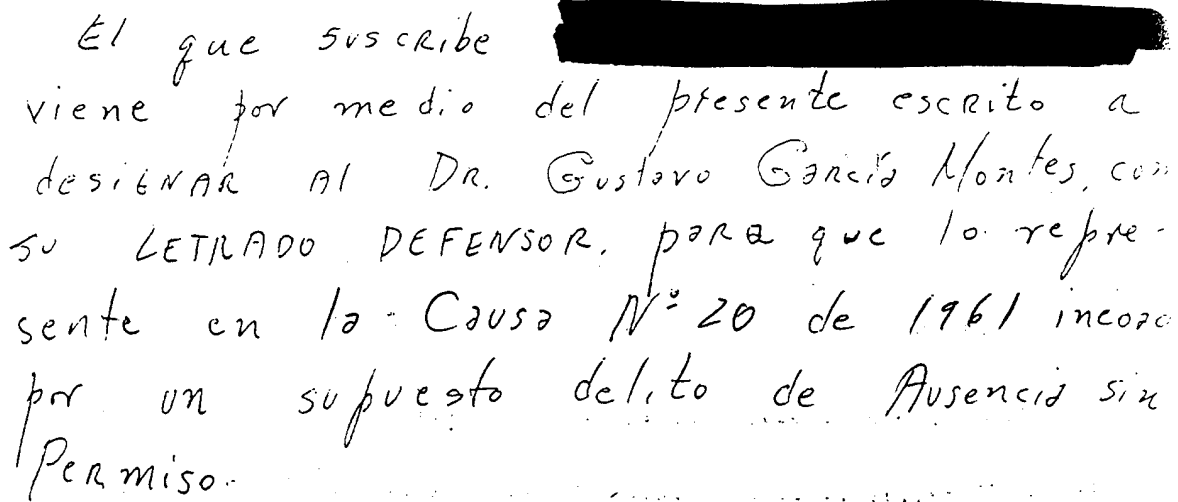 El que suscribe
viene por medio del presente escrito a
desIGNAR Al DR. Gustavo García Montes, com
su LETRADO DEFENSOR. para que lo repre-
sente en la Causa Nº 20 de 1961 incoac
por un supuesto delito de Ausencia sin
Permiso.